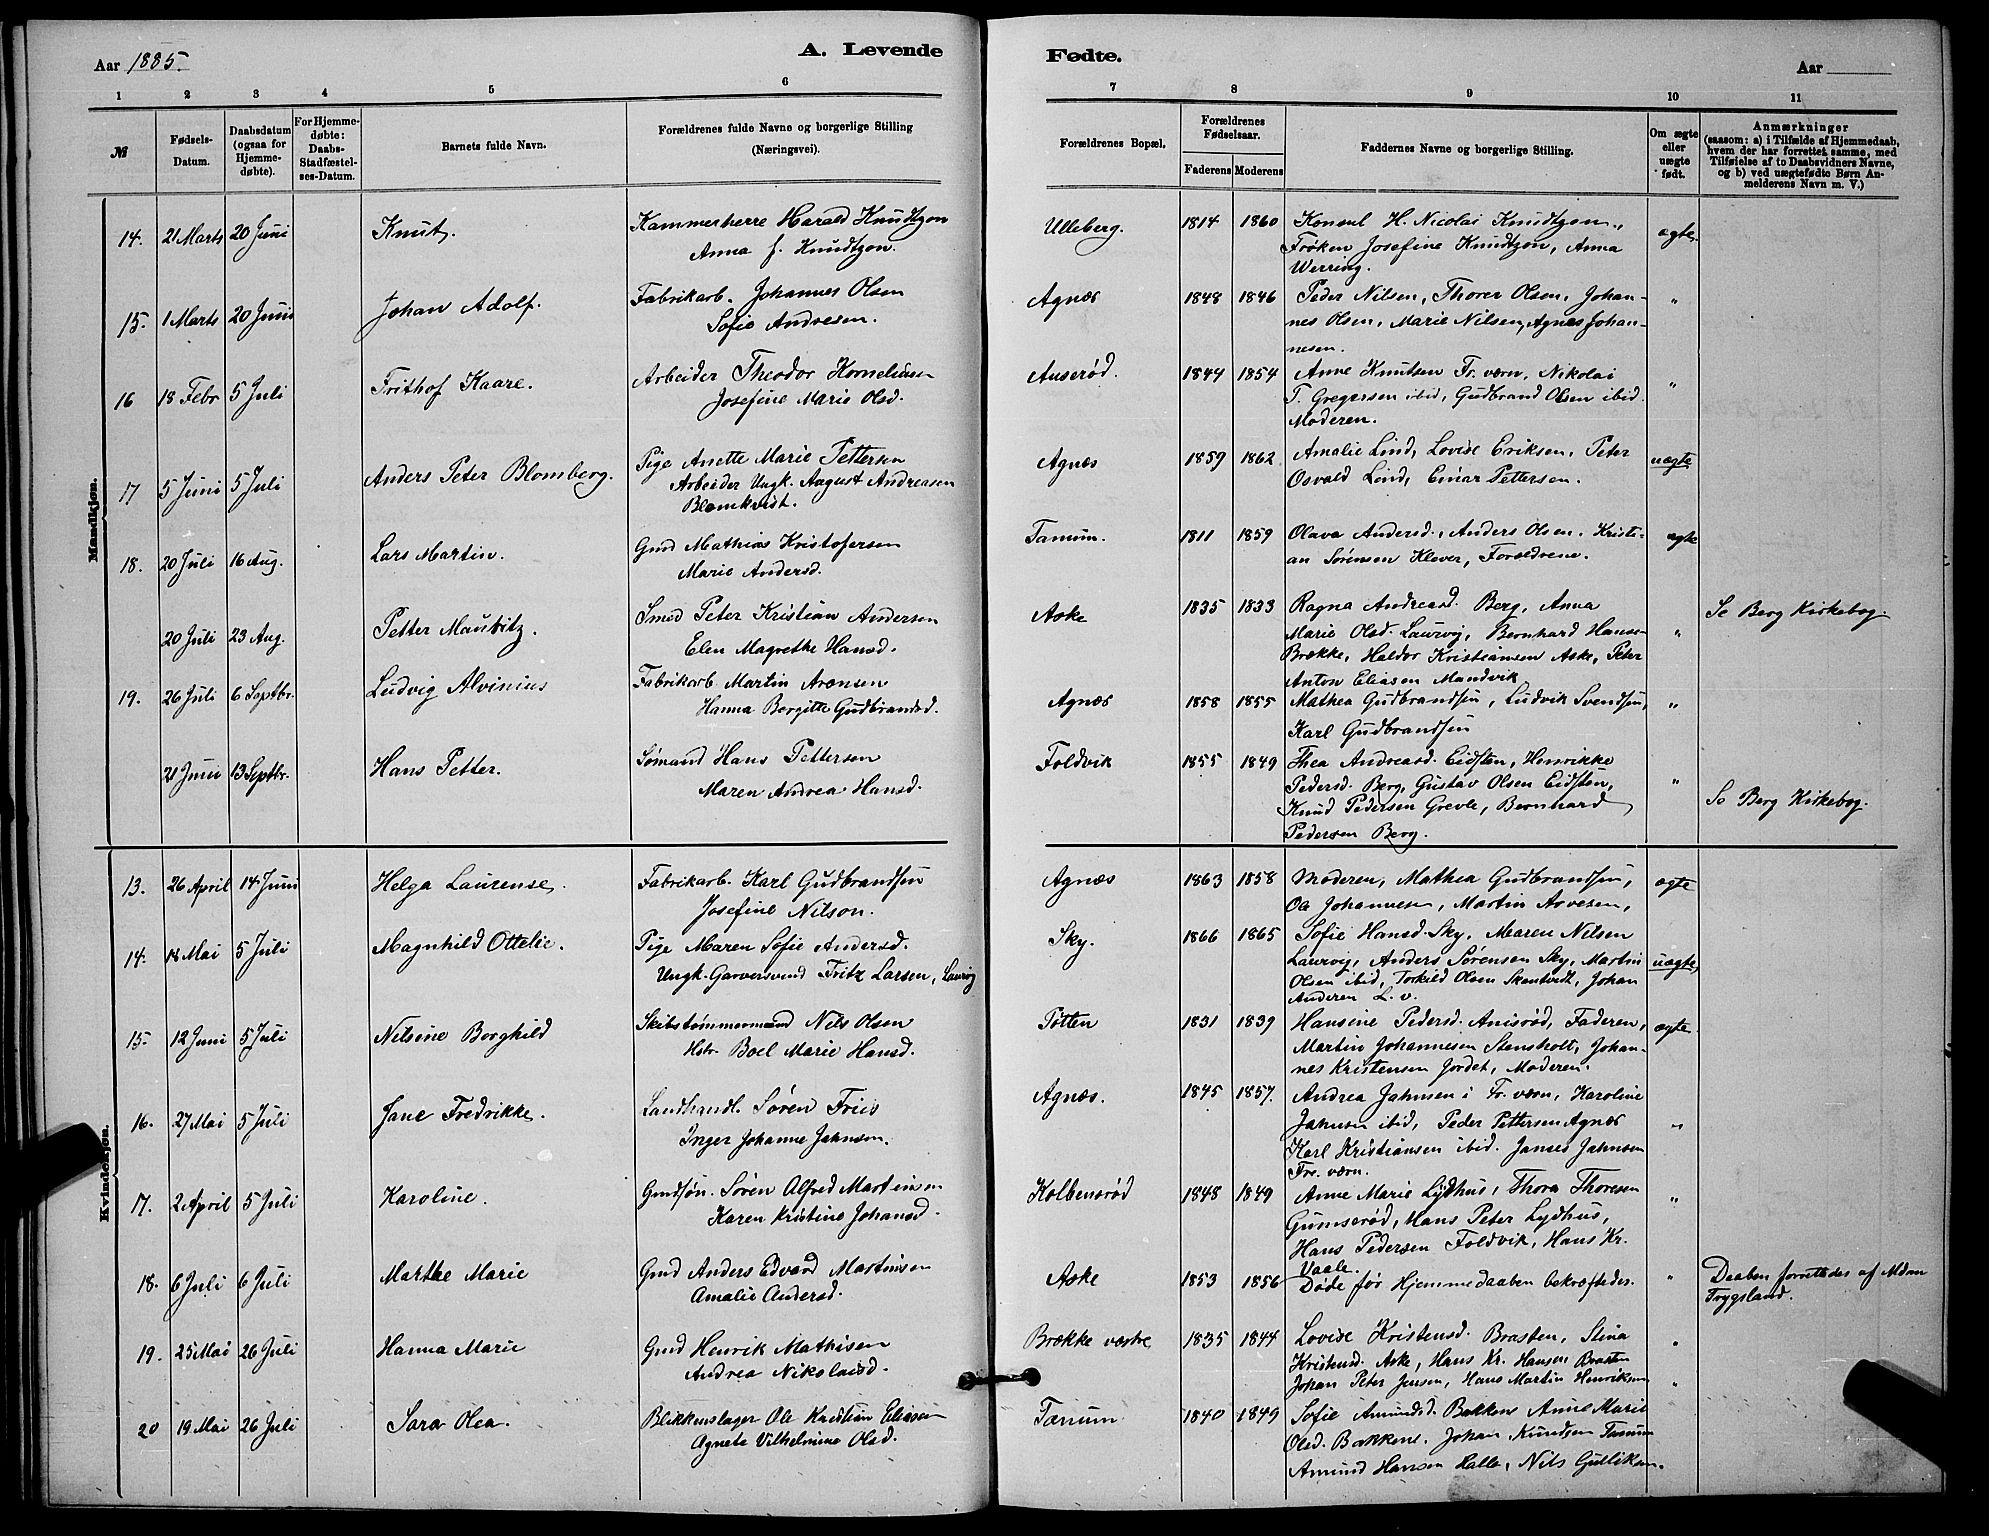 Aar 1885.
A. Levende
1 2 3 4 5 6
№
Fødsels-Datum.
Daabsdatum (ogsaa for Hjemme-døbte).
For Hjemme-døbte: Daabs-Stadfæstel-ses-Datum.
Barnets fulde Navn.
Forældrenes fulde Navne og borgerlige Stilling (Næringsvei).
Mandkjøn.
14. 21 Marts 20 Juni Knut. Kammerherre Harald Knudtzon
Anna f. Knudtzon.
15. 1 Marts 20 Juni Johan Adolf. Fabrikarb. Johannes Olsen
Sofie Andresen.
16 18 Febr 5 Juli Frithof Kaare. Arbeider Theodor Korneliusen
Josefine Marie Olsd.
17 5 Juni 5 Juli Anders Peter Blomberg. Pige Anette Marie Pettersen
Arbeider Ungk. August Andreasen
Blomkvist.
18. 20 Juli 16 Aug. Lars Martin. Gmd Mathias Kristofersen
Marie Andersd.
20 Juli 23 Aug. Petter Mauritz. Smed Peter Kristian Andersen
Elen Magrethe Hansd.
19. 26 Juli 6 Septbr. Ludvig Alvinius Fabrikarb. Martin Arensen
Hanna Bergitte Gudbrandsd.
21 Juni 13 Septbr. Hans Petter. Sømand Hans Pettersen
Maren Andrea Hansd.
Kvindekjøn.
13. 26 April 14 Juni Helga Laurense. Fabrikarb. Karl Gudbrandsen
Josefine Nilson.
14. 18 Mai 5 Juli Magnhild Ottelie. Pige Maren Sofie Andersd.
Ungk. Garversvend Fritz Larsen, Laurvig
15. 12 Juni 5 Juli Nilsine Borghild Skibstømmermand Nils Olsen
Hstr. Boel Marie Hansd.
16. 27 Mai 5 Juli Jane Fredrikke. Landhandl. Søren Friis
Inger Johanne Jahnsen.
17. 2 April 5 Juli Karoline. Gmdsøn. Søren Alfred Martinsen
Karen Kristine Johansd.
18. 6 Juli 6 Juli Marthe Marie Gmd Anders Edvard Martinsen
Amalie Andersd.
19. 25 Mai 26 Juli Hanna Marie Gmd Henrik Mathisen
Andrea Nikolaisd.
20 19 Mai 26 Juli Sara Olea. Blikkenslager Ole Kristian Eliasen
Agnete Vilhelmine Olsd.
Fødte.
Aar
7 8 9 10 11
Forældrenes Bopæl.
Forældrenes Fødselsaar.
Faderens Moderens
Faddernes Navne og borgerlige Stilling.
Om ægte eller uægte født.
Anmærkninger
(saasom: a) i Tilfælde af Hjemmedaab,
hvem der har forrettet samme, med
Tilføielse af to Daabsvidners Navne,
og b) ved uægtefødte Børn An-
melderens Navn m. V.)
Ulleberg. 1814 1860 Konsul H. Nicolai Knudtzon, ægte
Frøken Josefine Knudtzon, Anna
Werring.
Agnæs 1848 1846 Peder Nilsen, Thorer Olsen, Johan- "
nes Olsen, Marie Nilsen, Agnes Johan-
nesen.
Auserød. 1844 1854 Anne Knutsen Fr. værn, Nikolai "
T. Gregersen ibid, Gudbrand Olsen ibid.
Moderen.
Agnæs 1859 1862 Amalie Lind, Lovise Eriksen, Peter uægte
Osvald Lind, Einar Pettersen.
Tanum. 1811 1859 Olava Andersd., Anders Olsen, Kristi- ægte
an Sørensen Klever, Forældrene.
Aske 1835 1833 Ragna Andreasd. Berg, Anna Se Berg Kirkebog.
Marie Olsd. Laurvig, Bernhard Hansen "
Brække, Haldor Kristiansen Aske, Peter
Anton Eliasen Mandvik
Agnæs 1858 1855 Mathea Gudbrandsen, Ludvik Svendsen, "
Karl Gudbrandsen
Foldvik 1855 1849 Thea Andreasd. Eidsten, Henrikke
Pedersd. Berg, Gustav Olsen Eidsten, "
Knud Pedersen Grevle, Bernhard Se Berg Kirkebog.
Pedersen Berg.
Agnæs 1863 1858 Moderen, Mathea Gudbrandsen, ægte
Ole Johannesen, Martin Arvesen,
Sky. 1866 1865 Sofie Hansd. Sky, Maren Nilsen
Laurvig, Anders Sørensen Sky, Martin uægte
Olsen ibid, Torkild Olsen Skantvedt, Johan
Andersen L. v.
Pøtten 1831 1839 Hansine Pedersd. Anisrød, Faderen, ægte
Martin Johannesen Stensholt, Johan-
nes Kristensen Jordet, Moderen.
Agnæs. 1845 1857. Andrea Jahnsen i Fr. værn, Karoline
Jahnsen ibid, Peder Pettersen Agnæs "
Karl Kristiansen ibid. Janses Jahnsen
Fr. værn.
Kolbensrød 1848 1849 Anne Marie Lydhus, Thora Thoresen "
Gumserød, Hans Peter Lydhus,
Hans Pedersen Foldvik, Hans Kr.
Vaale.
Aske 1853 1856 Døde før Hjemmedaaben bekræftedes. " Daaben forrettedes af Mdm
Trygsland.
Brække vestre 1835 1844 Lovise Kristensd. Brasten, Stina "
Kristensd. Aske, Hans Kr. Hansen Brasten
Johan Peter Jensen, Hans Martin Henriksen
Tanum 1840 1849 Sofie Amundsd. Bakken Anne Marie "
Olsd. Bakkene. Johan Knudsen Tanum
Amund Hansen Halle, Nils Gulliksen.